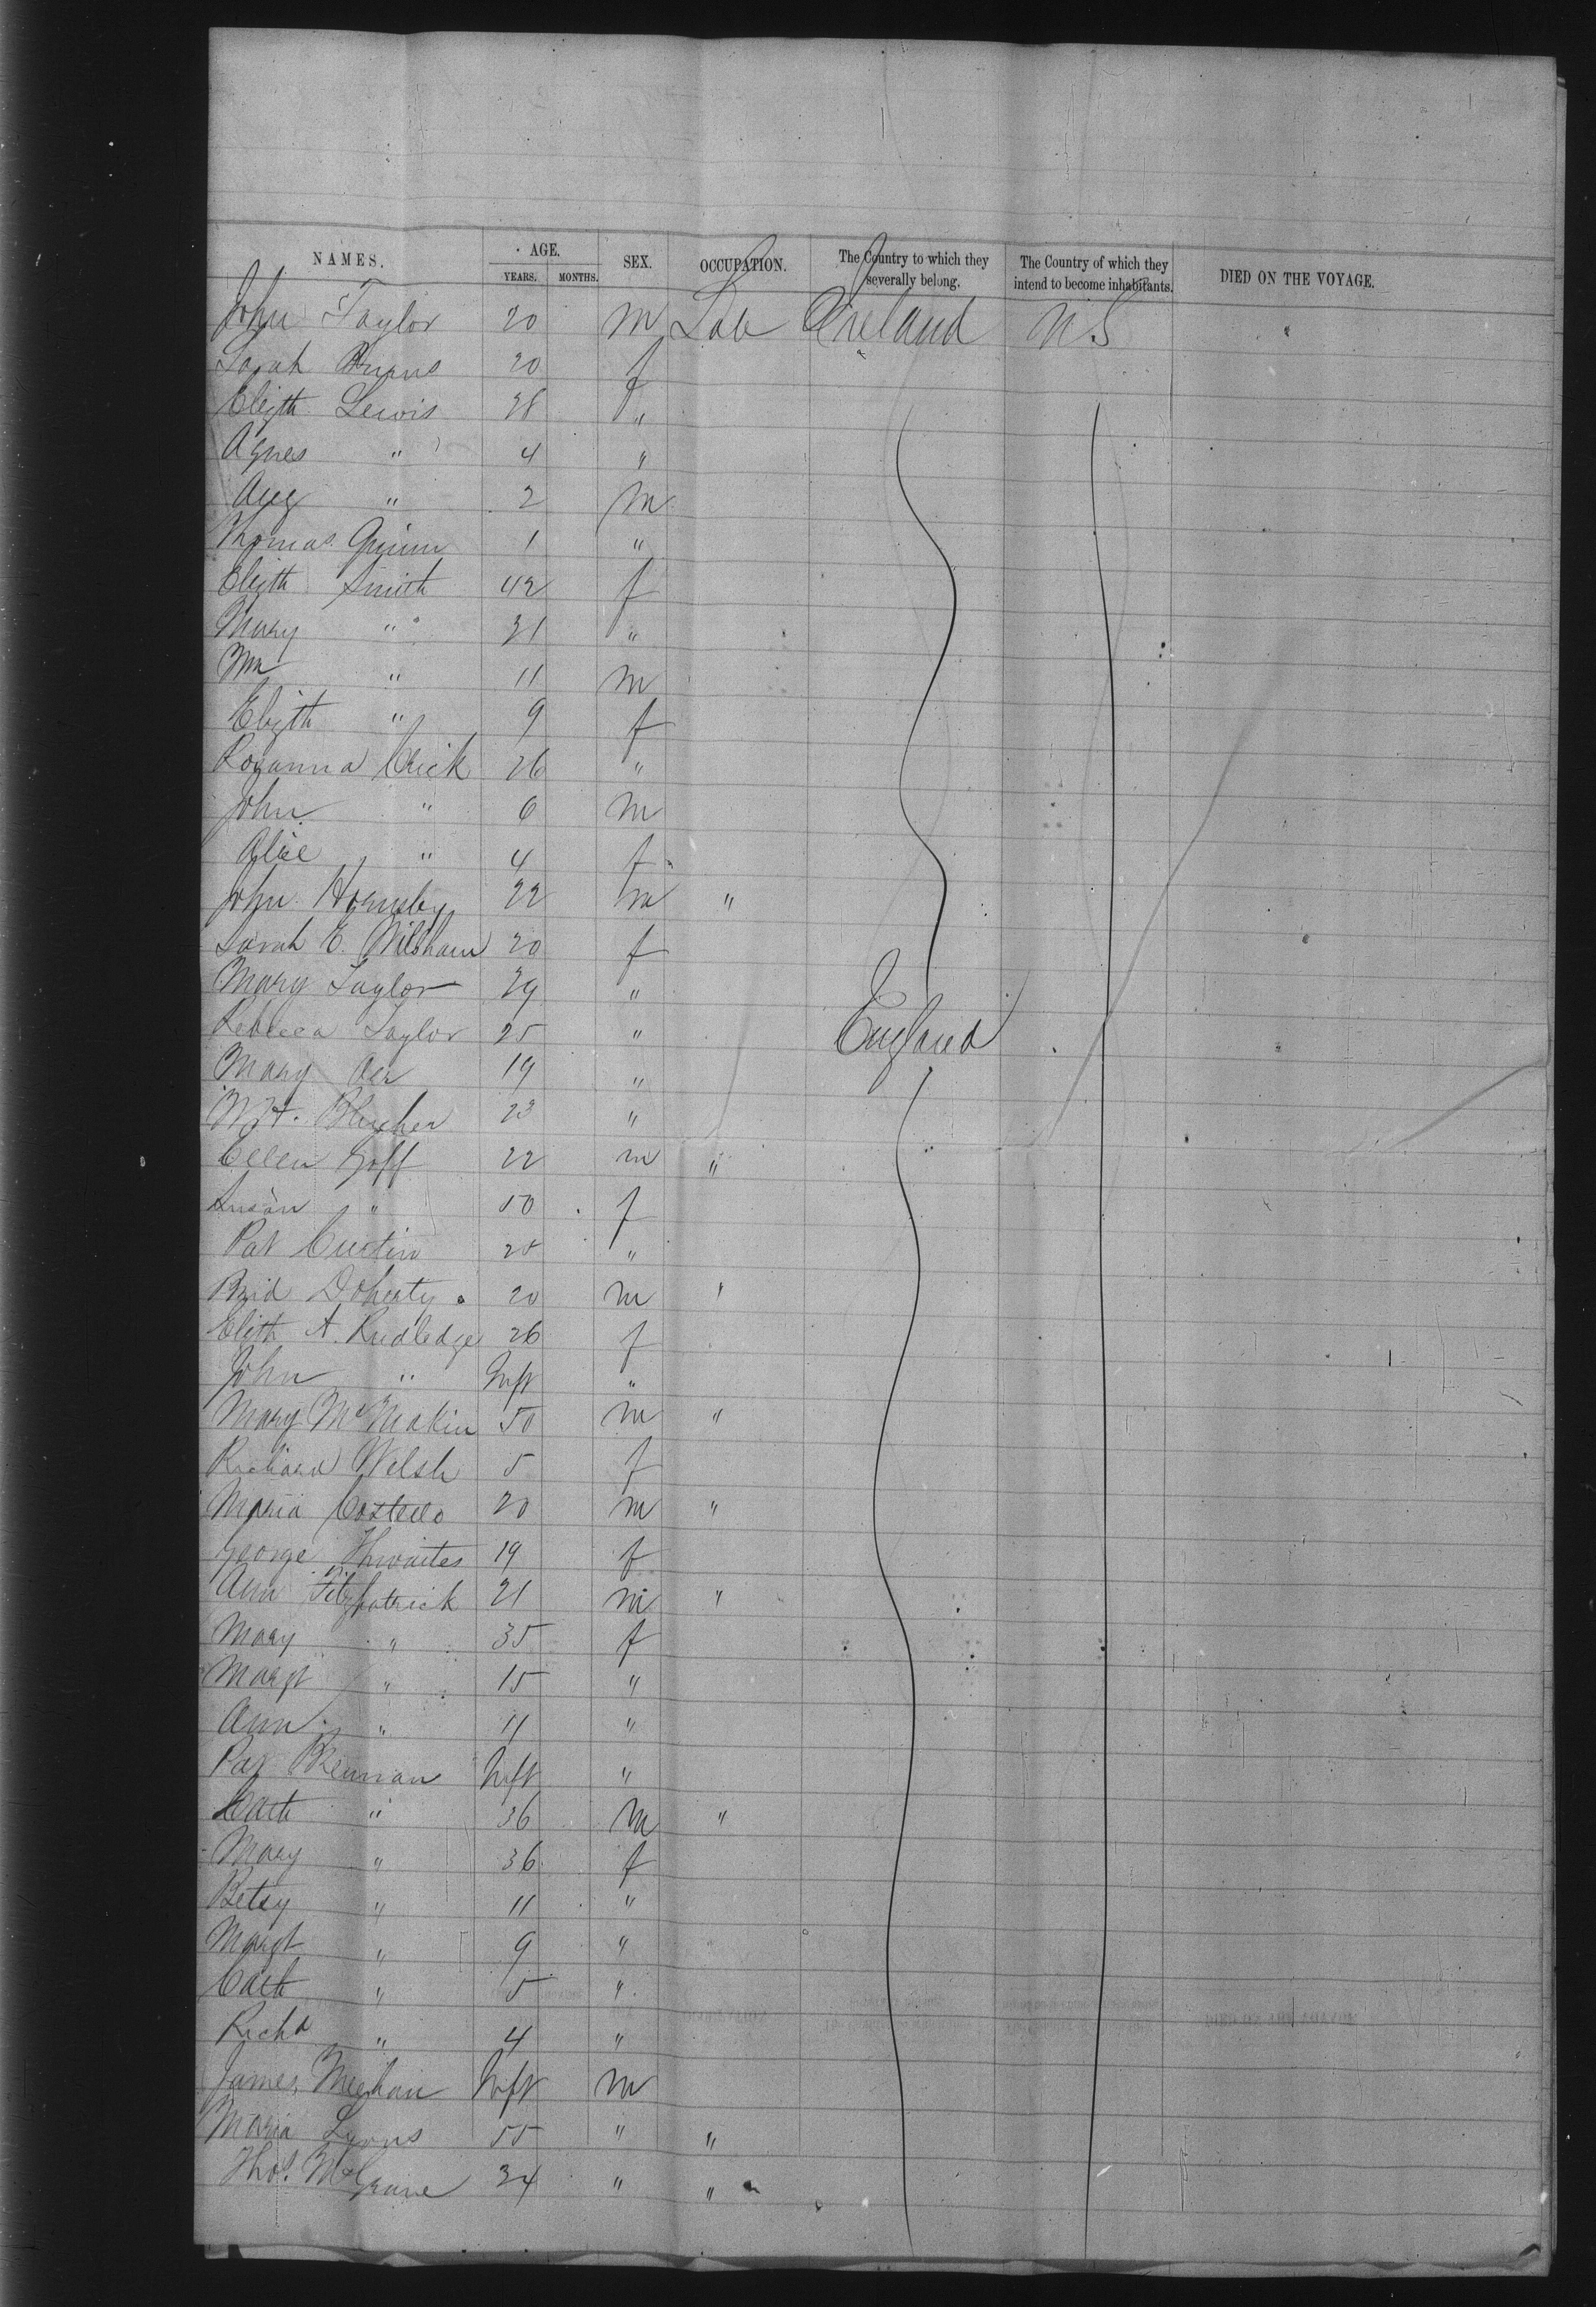 NAMES. AGE. SEX. OCCUPATION. The Country to which they severally belong. The Country of which they intend to become inhabitants. DIED ON THE VOYAGE.
YEARS. MONTHS.
John Taylor 20 m Lab Ireland U S
Sarah Burns 20 f
Elizth Lewis 38 "
Agnes " 4 "
Aug " 2 m
Thomas Quinn 1 "
Elizth Smith 42 f
Mary " 31 "
Wm " 11 m
Elizth " 9 f
Rosanna Crick 26 "
John " 6 m
Alice " 4 f
John Hornsby 22 m "
Sarah E. Wilsham 20 f
Mary Taylor 29 "
Rebecca Taylor 25 " England
Mary Orr 19 "
23 "
Ellen Goff 22 m "
Susan " 50 f
Pat Curtin 25 "
Brid Doherty 20 m "
Elizth A. Rudledge 26 f
John " Inft "
Mary McMakin 50 m "
Richard Welsh 5 f
Maria Costello 20 m "
George Thwaites 19 f
Ann Fitzpatrick 21 m "
Mary " 35 f
Margt " 15 "
Ann " 11 "
Pat Brennan Inft "
Cath " 36 m "
Mary " 36 f
Betsy " 11 "
Margt " 9 "
Cath " 5 "
Richd " 4 "
James Meehan Inft m
Maria Lyons 55 " "
Thos. McGrane 34 " "